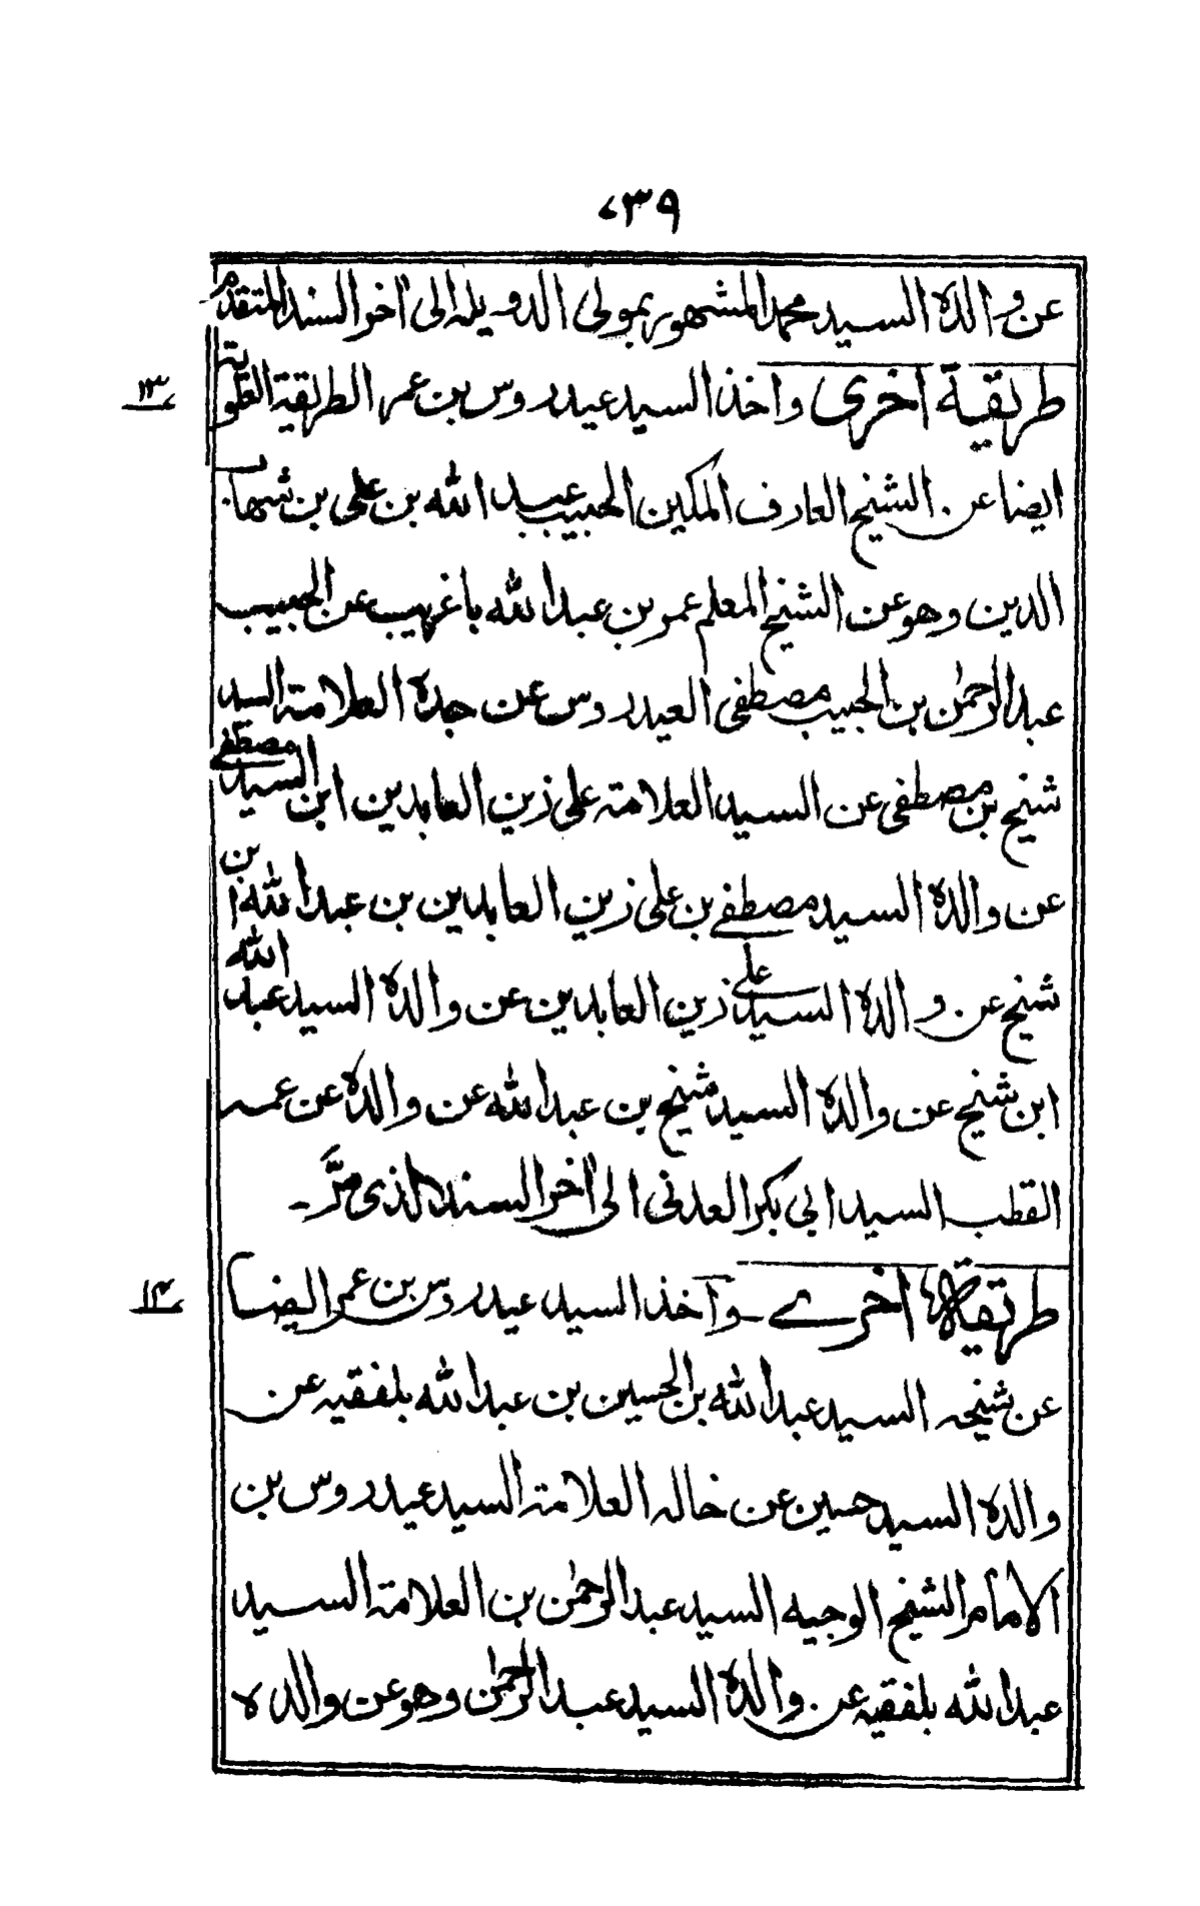 ٠٣٩
عن والده السيد محمد المشهور بمولى الدويله الى اخر السند المتقدم
١٣ طريقة اخرى واخذ السيد عيدروس بن عمر الطريقة العلوية
ايضا عن الشيخ العارف المكين الحبيب عبد الله بن على بن شهاب
الدين وهو عن الشيخ المعلم عمر بن عبد الله باغريب عن الحبيب
عبد الرحمٰن بن الحبيب مصطفى العيدروس عن جده العلامة السيد
شيخ بن مصطفى عن السيد العلامة على زين العابدين ابن السيد مصطفى
عن والده السيد مصطفى بن على زين العابدين بن عبد الله ا بن
شيخ عن والده السيد على زين العابدين عن والده السيد عبد الله
ابن شيخ عن والده السيد شيخ بن عبد الله عن والده عن عمه
القطب السيد ابي بكر العدنى الى اخر السند الذى مرَّ -
١٤ طريقة اخرے - واخذ السيد عيدروس بن عمر ايضا
عن شيخه السيد عبد الله بن الحسين بن عبد الله بلفقيه عن
والده السيد حسين عن خاله العلامة السيد عيدروس بن
الامام الشيخ الوجيه السيد عبد الرحمٰن بن العلامة السيد
عبد الله بلفقيه عن والده السيد عبد الرحمٰن وهو عن والده